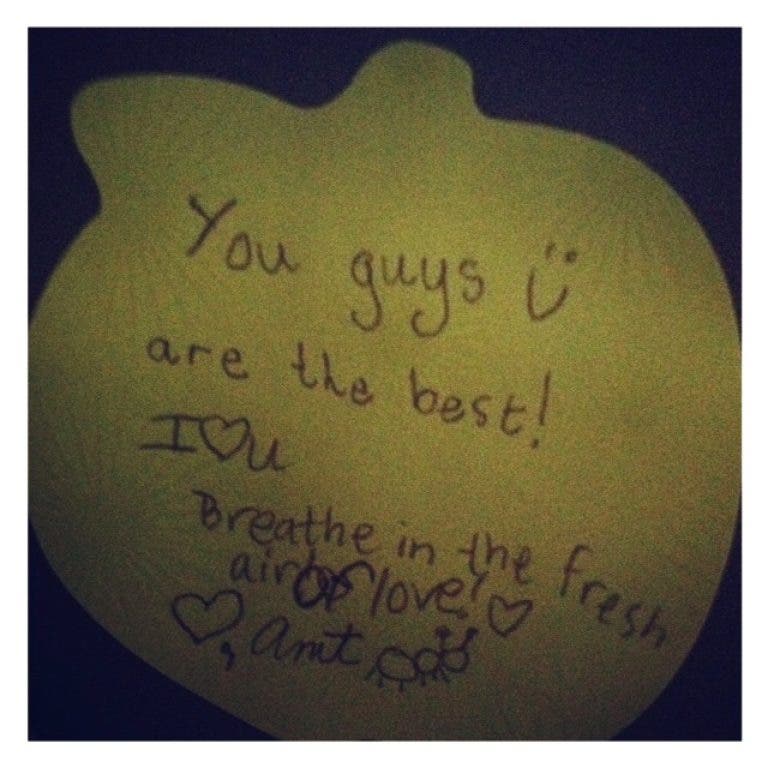 You guys
are the best!
I ♡ u
Breathe in the fresh
air of love! ♡
♡, Amt